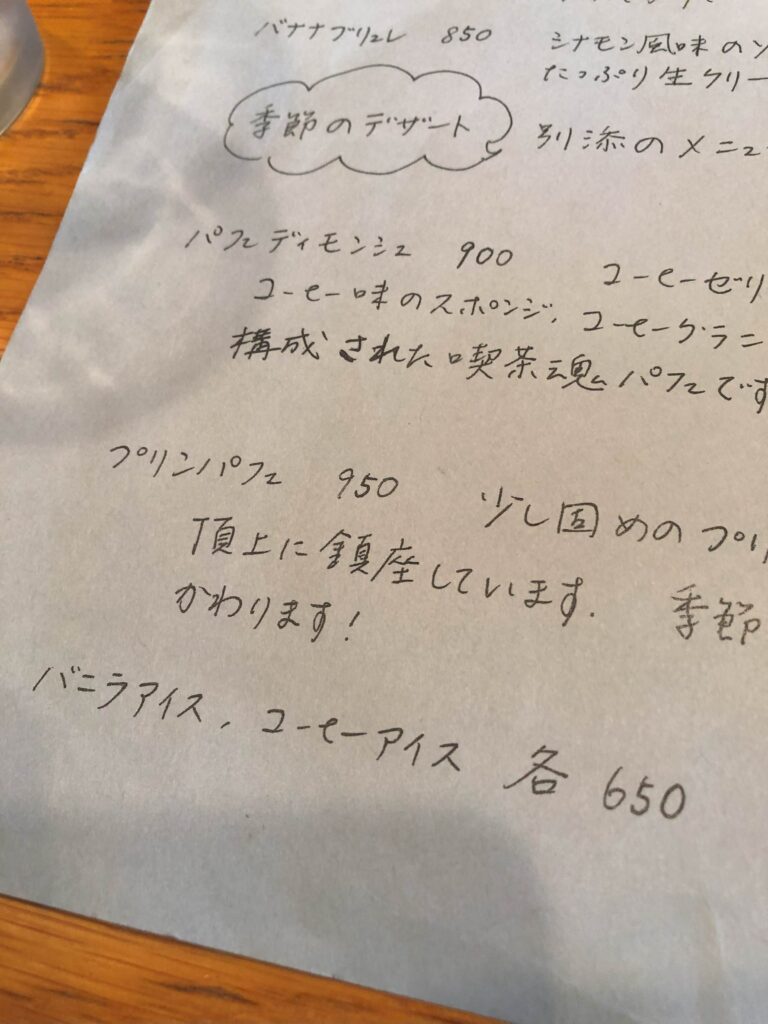 バナナブリュレ 850 シナモン風味の
たっぷり生クリー
季節のデザート 別添のメニュ
パフェ ディモンシュ 900 コーヒーゼリ
コーヒー味のスポンジ、コーヒーグラニ
構成された喫茶魂パフェです
プリンパフェ 950 少し固めのプリ
頂上に鎮座しています. 季節
かわります!
バニラアイス, コーヒーアイス 各 650